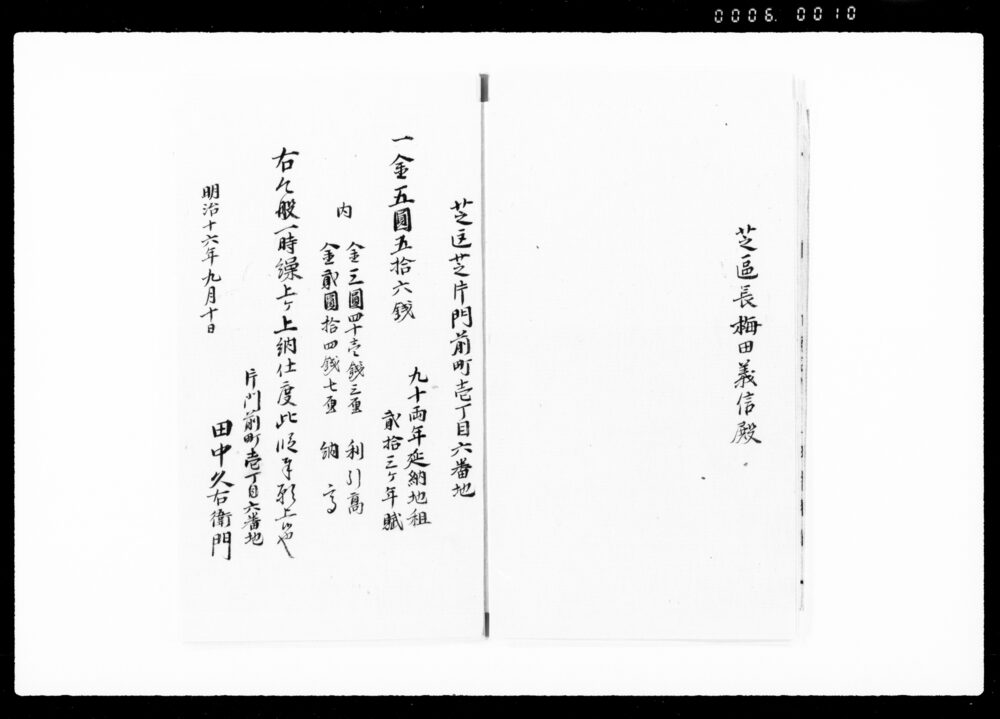 0006. 0010
芝區長梅田義信殿
芝区芝片門前町壱丁目六番地
一金五圓五拾六銭
九十両年延納地租
貮拾三ヶ年賦
内
金三圓四十壱銭三厘 利引高
金貮圓拾四銭七厘 納高
右今般一時繰上ヶ上納仕度此段奉願上候也
片門前町壱丁目六番地
田中久右衛門
明治十六年九月十日